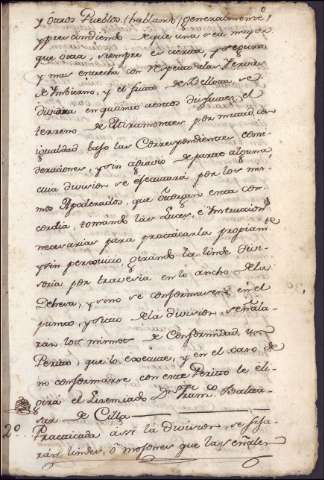 y otros Pueblos, (hablando) generalmente,
y prescindiendo de que una sea mayor
que otra, siempre es cierta, y segura
y mas estrecha con respecto a las Yervas
de Ymbierno, y el fruto de Bellota, se
dividirá en quanto a estos disfrutes, el
terreno de Ultramontes por mitad con
igualdad bajo las Correspondientes consi
deraciones, y sin agravio de parte alguna
cuia division se efectuará por los mis
mos Apoderados, que otorgan esta con
cordia, tomando las Luces, e Ynstruccion
necesarias para practicarla propiamte
y sin perjuicio girando la linde divi
soria por travesia en lo ancho de la
Dehesa, y si no se conformasen en el
punto, y sitio de la division, señala
ran los mismos de Conformidad un
Perito, que lo execute, y en el caso de
no conformarse con este Perito le ele
girá el Licenciado Dn Franco
de Cilla
2o Practicada asi la division, se fija
rán lindes, ò mojones que la señalen